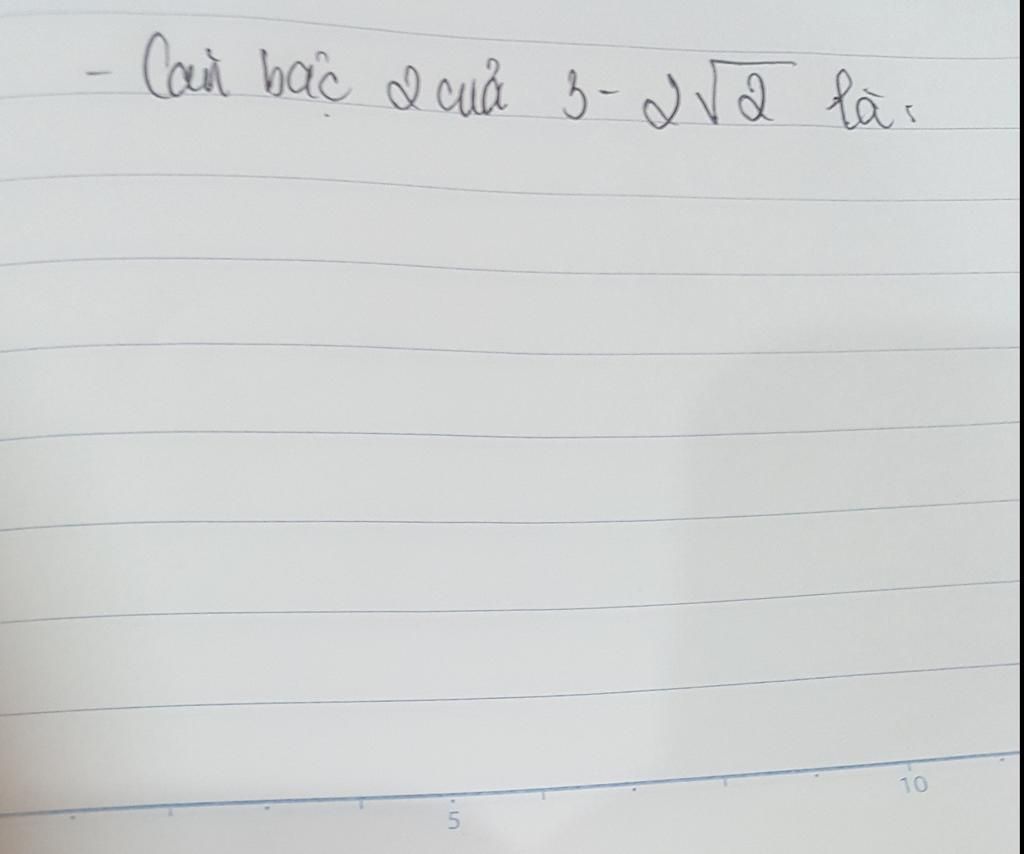 - Căn bậc 2 của 3 - 2√2 là:
5
10